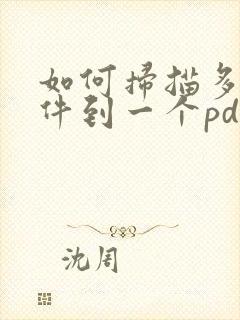 如何掃描多
件到一个pd
沈周